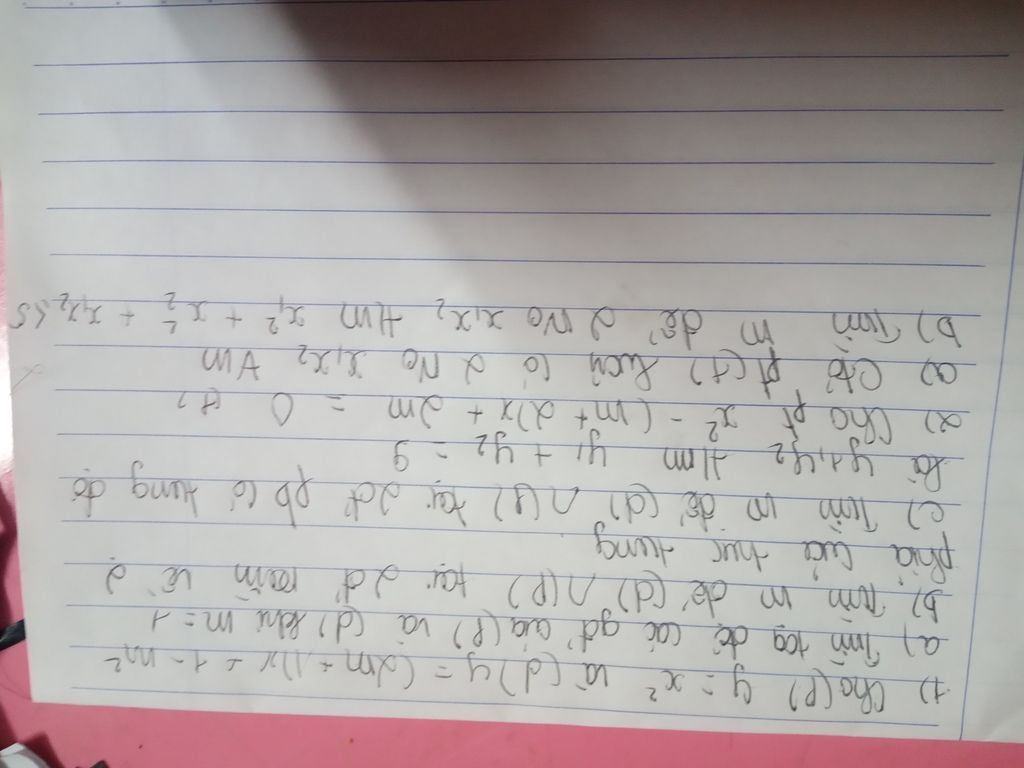 1) Cho (P) y = x² và (d) y = (2m + 1)x + 1 - m²
a) Tìm tọa độ các gđ của (P) và (d) khi m = 1
b) Tìm m để (d) ∩ (P) tại 2đ nằm về 2
phía của trục tung
c) Tìm m để (d) ∩ (P) tại 2đ pb có tung độ
là y1, y2 t/m y1 + y2 = 9
2) Cho pt x² - (m + 2)x + 2m = 0 (1)
a) Ctỏ pt (1) luôn có 2 No x1 x2 ∀m
b) Tìm m để 2 No x1 x2 t/m x1² + x2² + x1x2 ≤ 5